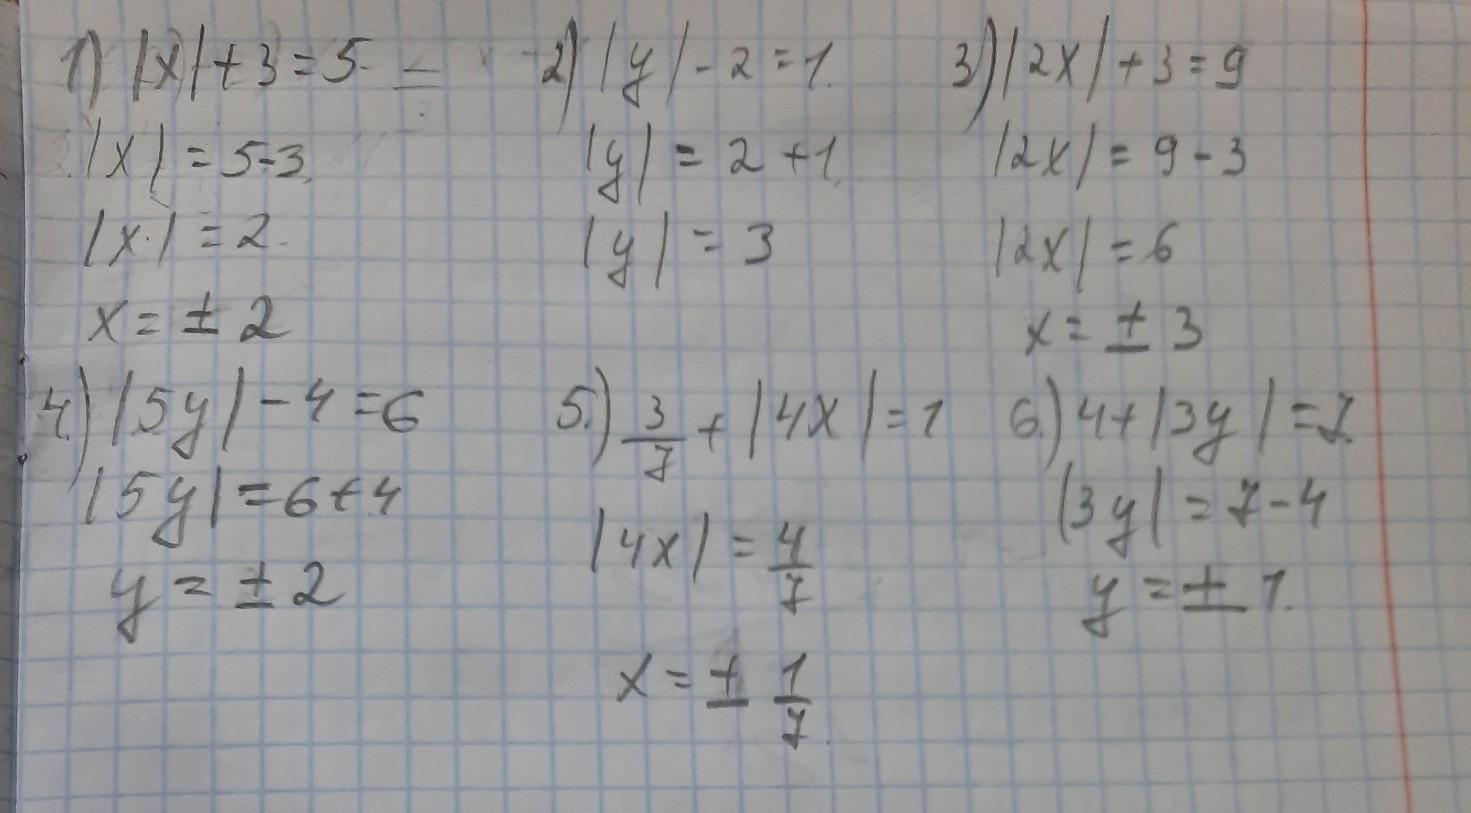 1) |x| + 3 = 5 =
|x| = 5 - 3
|x| = 2
x = ± 2
2) |y| - 2 = 1.
|y| = 2 + 1
|y| = 3
3) |2x| + 3 = 9
|2x| = 9 - 3
|2x| = 6
x = ± 3
4.) |5y| - 4 = 6
|5y| = 6 + 4
y = ± 2
5.) 3/7 + |4x| = 1
|4x| = 4/7
x = ± 1/7
6.) 4 + |3y| = 7.
|3y| = 7 - 4
y = ± 1.